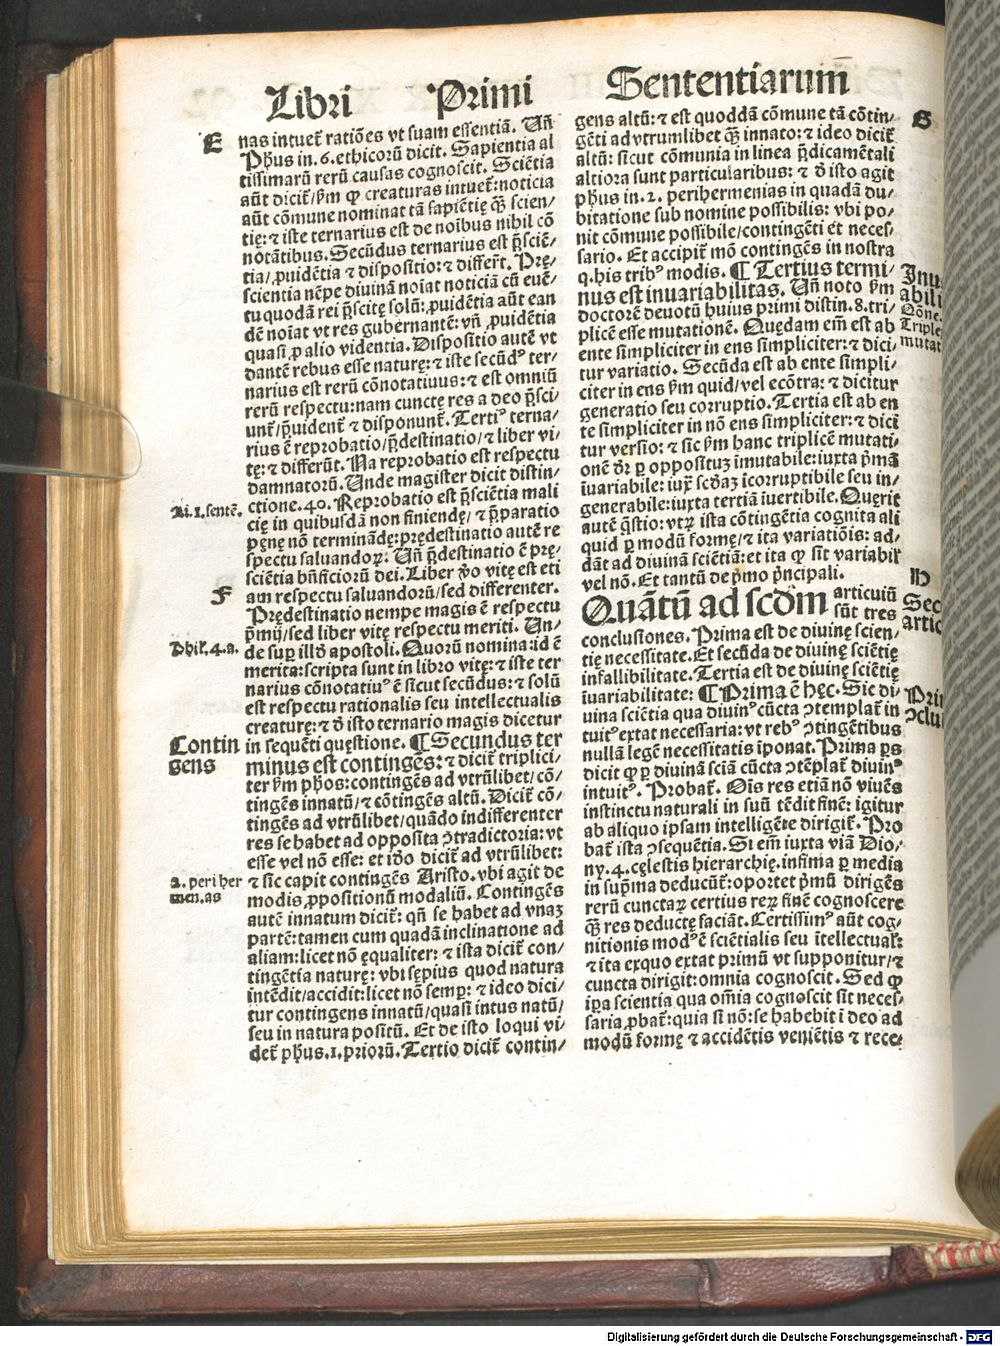 Libri Primi Sententiarum
E
nas intuet̃ ratiões vt suam essentiã. Vñ
Phũs in .6. ethicorũ dicit. Sapientia al
tissimarũ rerũ causas cognoscit. Sciẽtia
aũt dicit̃/ p̃m ꝙ creaturas intuet̃: noticia
aũt cõmune nominat tã sapiẽtię q̃ꝫ scien/
tię: ⁊ iste ternarius est de noĩbus nihil cõ
notãtibus. Secũdus ternarius est p̃sciẽ-
tia/ ꝓuidẽtia ⁊ dispositio: ⁊ differt̃. Prę/
scientia nẽpe diuinã noĩat noticiã cũ euẽ/
tu quodã rei p̃scitę solũ: ꝓuidẽtia aũt ean
dẽ noĩat vt res gubernantẽ: vñ ꝓuidẽtia
quasi ꝓ alio videntia. Dispositio autẽ vt
dantẽ rebus esse naturę: ⁊ iste secũdꝰ ter-
narius est rerũ cõnotatiuus: ⁊ est omniũ
rerũ respectu: nam cunctę res a deo p̃sci/
unt̃/ p̃uident̃ ⁊ disponunt̃. Tertiꝰ terna/
rius ẽ reprobatio/ p̃destinatio/ ⁊ liber vi/
tę: ⁊ differũt. Nã reprobatio est respectu
damnatorũ. Unde magister dicit distin/
Ai. 1. sentẽ.
ctione. 40. Reprobatio est p̃sciẽtia mali
cię in quibusdã non finiendę/ ⁊ p̃paratio
pęnę nõ terminãdę: prędestinatio autẽ re
spectu saluandoꝝ. Vñ p̃destinatio ẽ prę/
sciẽtia bñficiorũ dei. Liber ꝟo vitę est eti
F
am respectu saluandorũ/ sed differenter.
Prędestinatio nempe magis ẽ respectu
p̃mij/ sed liber vitę respectu meriti. Un/
Phil̃. 4. a.
de sup illð apostoli. Quorũ nomina: id ẽ
merita: scripta sunt in libro vitę: ⁊ iste ter
narius cõnotatiuꝰ ẽ sicut secũdus: ⁊ solũ
est respectu rationalis seu intellectualis
creaturę: ⁊ ð isto ternario magis dicetur
Contin
gens
in sequẽti quęstione. ¶ Secundus ter
minus est contingẽs: ⁊ dicit̃ triplici/
ter p̃m phõs: contingẽs ad vtrũlibet/ cõ/
tingẽs innatũ/ ⁊ cõtingẽs altũ. Dicit̃ cõ/
tingẽs ad vtrũlibet/ quãdo indifferenter
res se habet ad opposita ꝯtradictoria: vt
esse vel nõ esse: et iðo dicit̃ ad vtrũlibet:
2. peri her
men. as
⁊ sic capit contingẽs Aristo. vbi agit de
modis ꝓpositionũ modaliũ. Contingẽs
autẽ innatum dicit̃: qñ se habet ad vnaꝫ
partẽ: tamen cum quadã inclinatione ad
aliam: licet nõ ęqualiter: ⁊ ista dicit̃ con/
tingẽtia naturę: vbi sępius quod natura
intẽdit/ accidit: licet nõ semp: ⁊ ideo dici/
tur contingens innatũ/ quasi intus natũ/
seu in natura positũ. Et de isto loqui vi/
det̃ phũs. 1. priorũ. Tertio dicit̃ contin/
G
gens altũ: ⁊ est quoddã cõmune tã cõtin/
gẽti ad vtrumlibet q̃ꝫ innato: ⁊ ideo dicit̃
altũ: sicut cõmunia in linea p̃dicamẽtali
altiora sunt particularibus: ⁊ ð isto agit
phũs in. 2. perihermenias in quadã du/
bitatione sub nomine possibilis: vbi po/
nit cõmune possibile/ contingẽti et neces/
sario. Et accipit̃ mõ contingẽs in nostra
q. his tribꝰ modis. ¶ Tertius termi/
Inu
abili
Qõne
Triplex
mutat
nus est inuariabilitas. Vñ noto p̃m
doctorẽ deuotũ huius primi distin. 8. tri/
plicẽ esse mutationẽ. Quędam em̃ est ab
ente simpliciter in ens simpliciter: ⁊ dici/
tur variatio. Secũda est ab ente simpli/
citer in ens p̃m quid/ vel ecõtra: ⁊ dicitur
generatio seu corruptio. Tertia est ab en
te simpliciter in nõ ens simpliciter: ⁊ dici
tur versio: ⁊ sic p̃m hanc triplicẽ mutati/
onẽ ðr̃ ꝑ oppositũ ĩmutabile: iuxta p̃mã
ĩuariabile: iux̃ scðaꝫ icorruptibile seu in/
generabile: iuxta tertiã ĩuertibile. Quęrit̃
autẽ q̃stio: vtꝝ ista cõtingẽtia cognita ali
quid ꝑ modũ formę/ ⁊ ita variatiõis: ad/
dãt ad diuinã sciẽtiã: et ita ꝙ sit variabil̃
vel nõ. Et tantũ de p̃mo p̃ncipali.
H
Sec
artic
Quãtũ ad scðm articuiũ
sũt tres
conclusiones. Prima est de diuinę scien/
tię necessitate. Et secũda de diuinę sciẽtię
infallibilitate. Tertia est de diuinę sciẽtię
Pri
ꝯclu
ĩuariabilitate: ¶ Prima ẽ hęc. Sic di/
uina sciẽtia qua diuinꝰ cũcta ꝯtemplat̃ in
tuitꝰ extat necessaria: vt rebꝰ ꝯtingẽtibus
nullã legẽ necessitatis ĩponat. Prima ꝑs
dicit ꝙ ꝑ diuinã sciã cũcta ꝯtẽplat̃ diuinꝰ
intuitꝰ. Probat̃. Ois res etiã nõ viuẽs
instinctu naturali in suũ tẽdit finẽ: igitur
ab aliquo ipsam intelligẽte dirigit̃. Pro
bat̃ ista ꝯsequẽtia. Si em̃ iuxta viã Dio/
ny. 4. cęlestis hierarchię. infima ꝑ media
in sup̃ma deducũt̃: oportet p̃mũ dirigẽs
rerũ cunctaꝝ certius reꝝ finẽ cognoscere
q̃ꝫ res deductę faciãt. Certissimꝰ aũt cog/
nitionis modꝰ ẽ sciẽtialis seu ĩtellectual̃:
⁊ ita exquo extat primũ vt supponitur/ ⁊
cuncta dirigit: omnia cognoscit. Sed ꝙ
ip̃a scientia qua oĩa cognoscit sit neces/
saria ꝓbat̃: quia si nõ: se habebit ĩ deo ad
modũ formę ⁊ accidẽtis veniẽtis ⁊ rece/
Digitalisierung gefördert durch die Deutsche Forschungsgemeinschaft - DFG